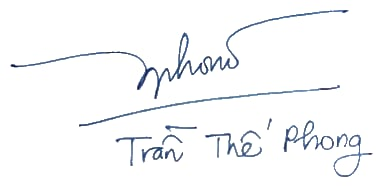 Phong
Trần Thế Phong